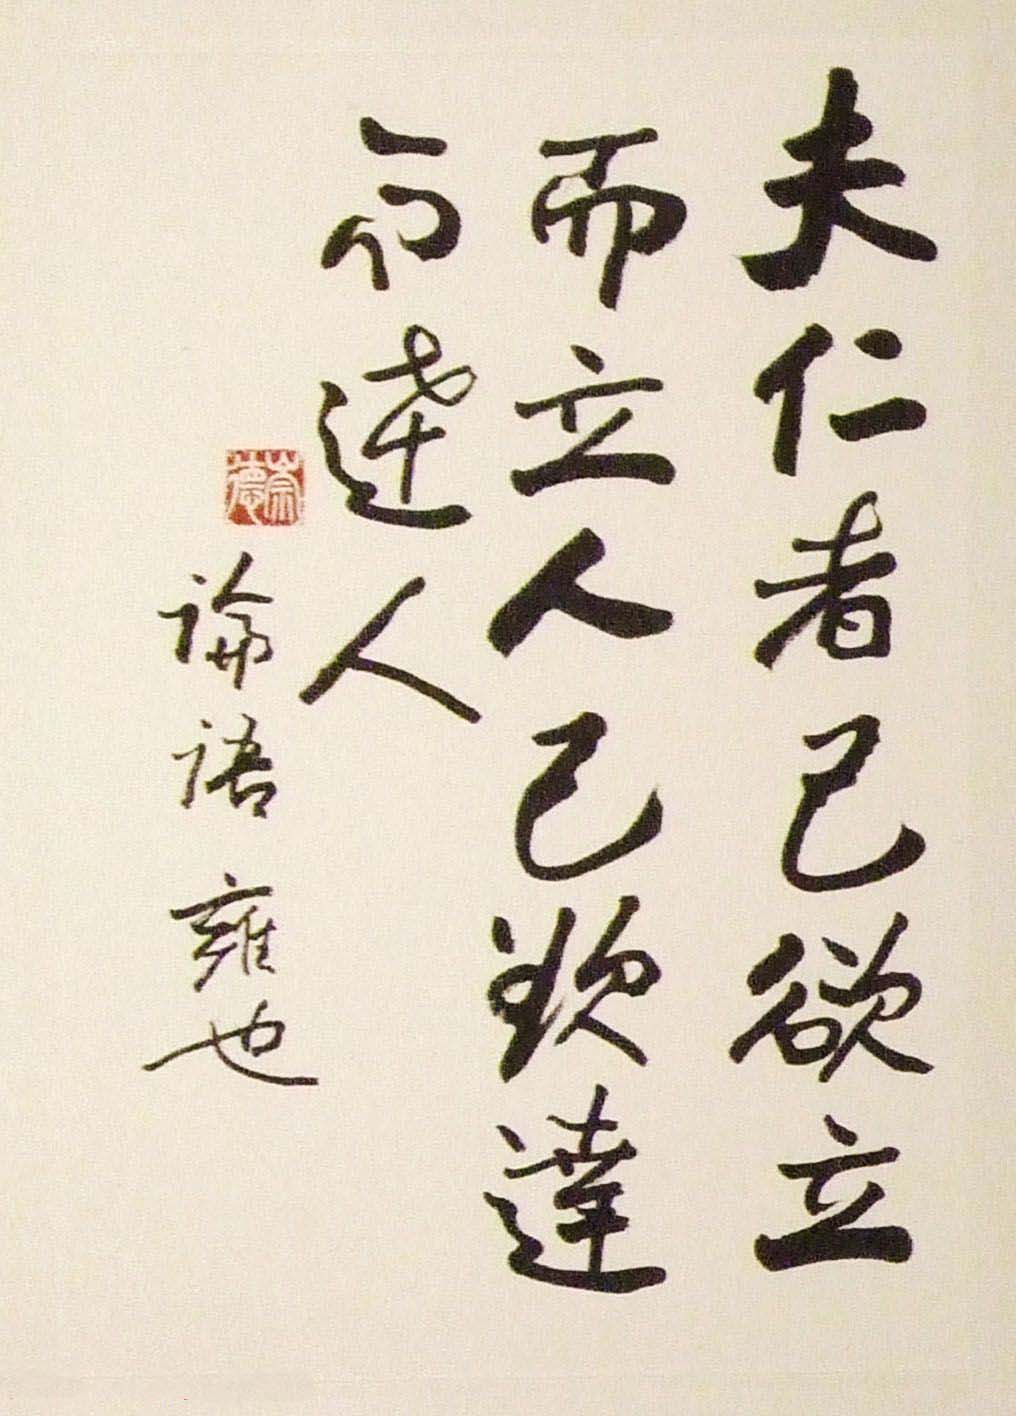 夫仁者己欲立
而立人己欲達
而達人
論語 雍也
崇德